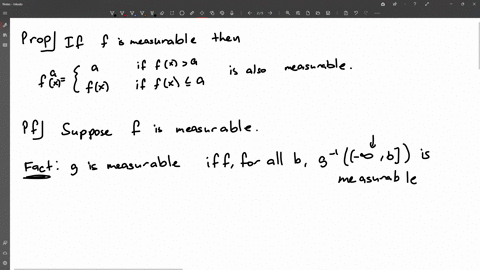 Prop] If f is measurable then
fᵃ(x) = { a if f(x) > a
f(x) if f(x) ≤ a is also measurable.
Pf] Suppose f is measurable.
Fact: g is measurable iff, for all b, g⁻¹((-∞, b]) is
measurable